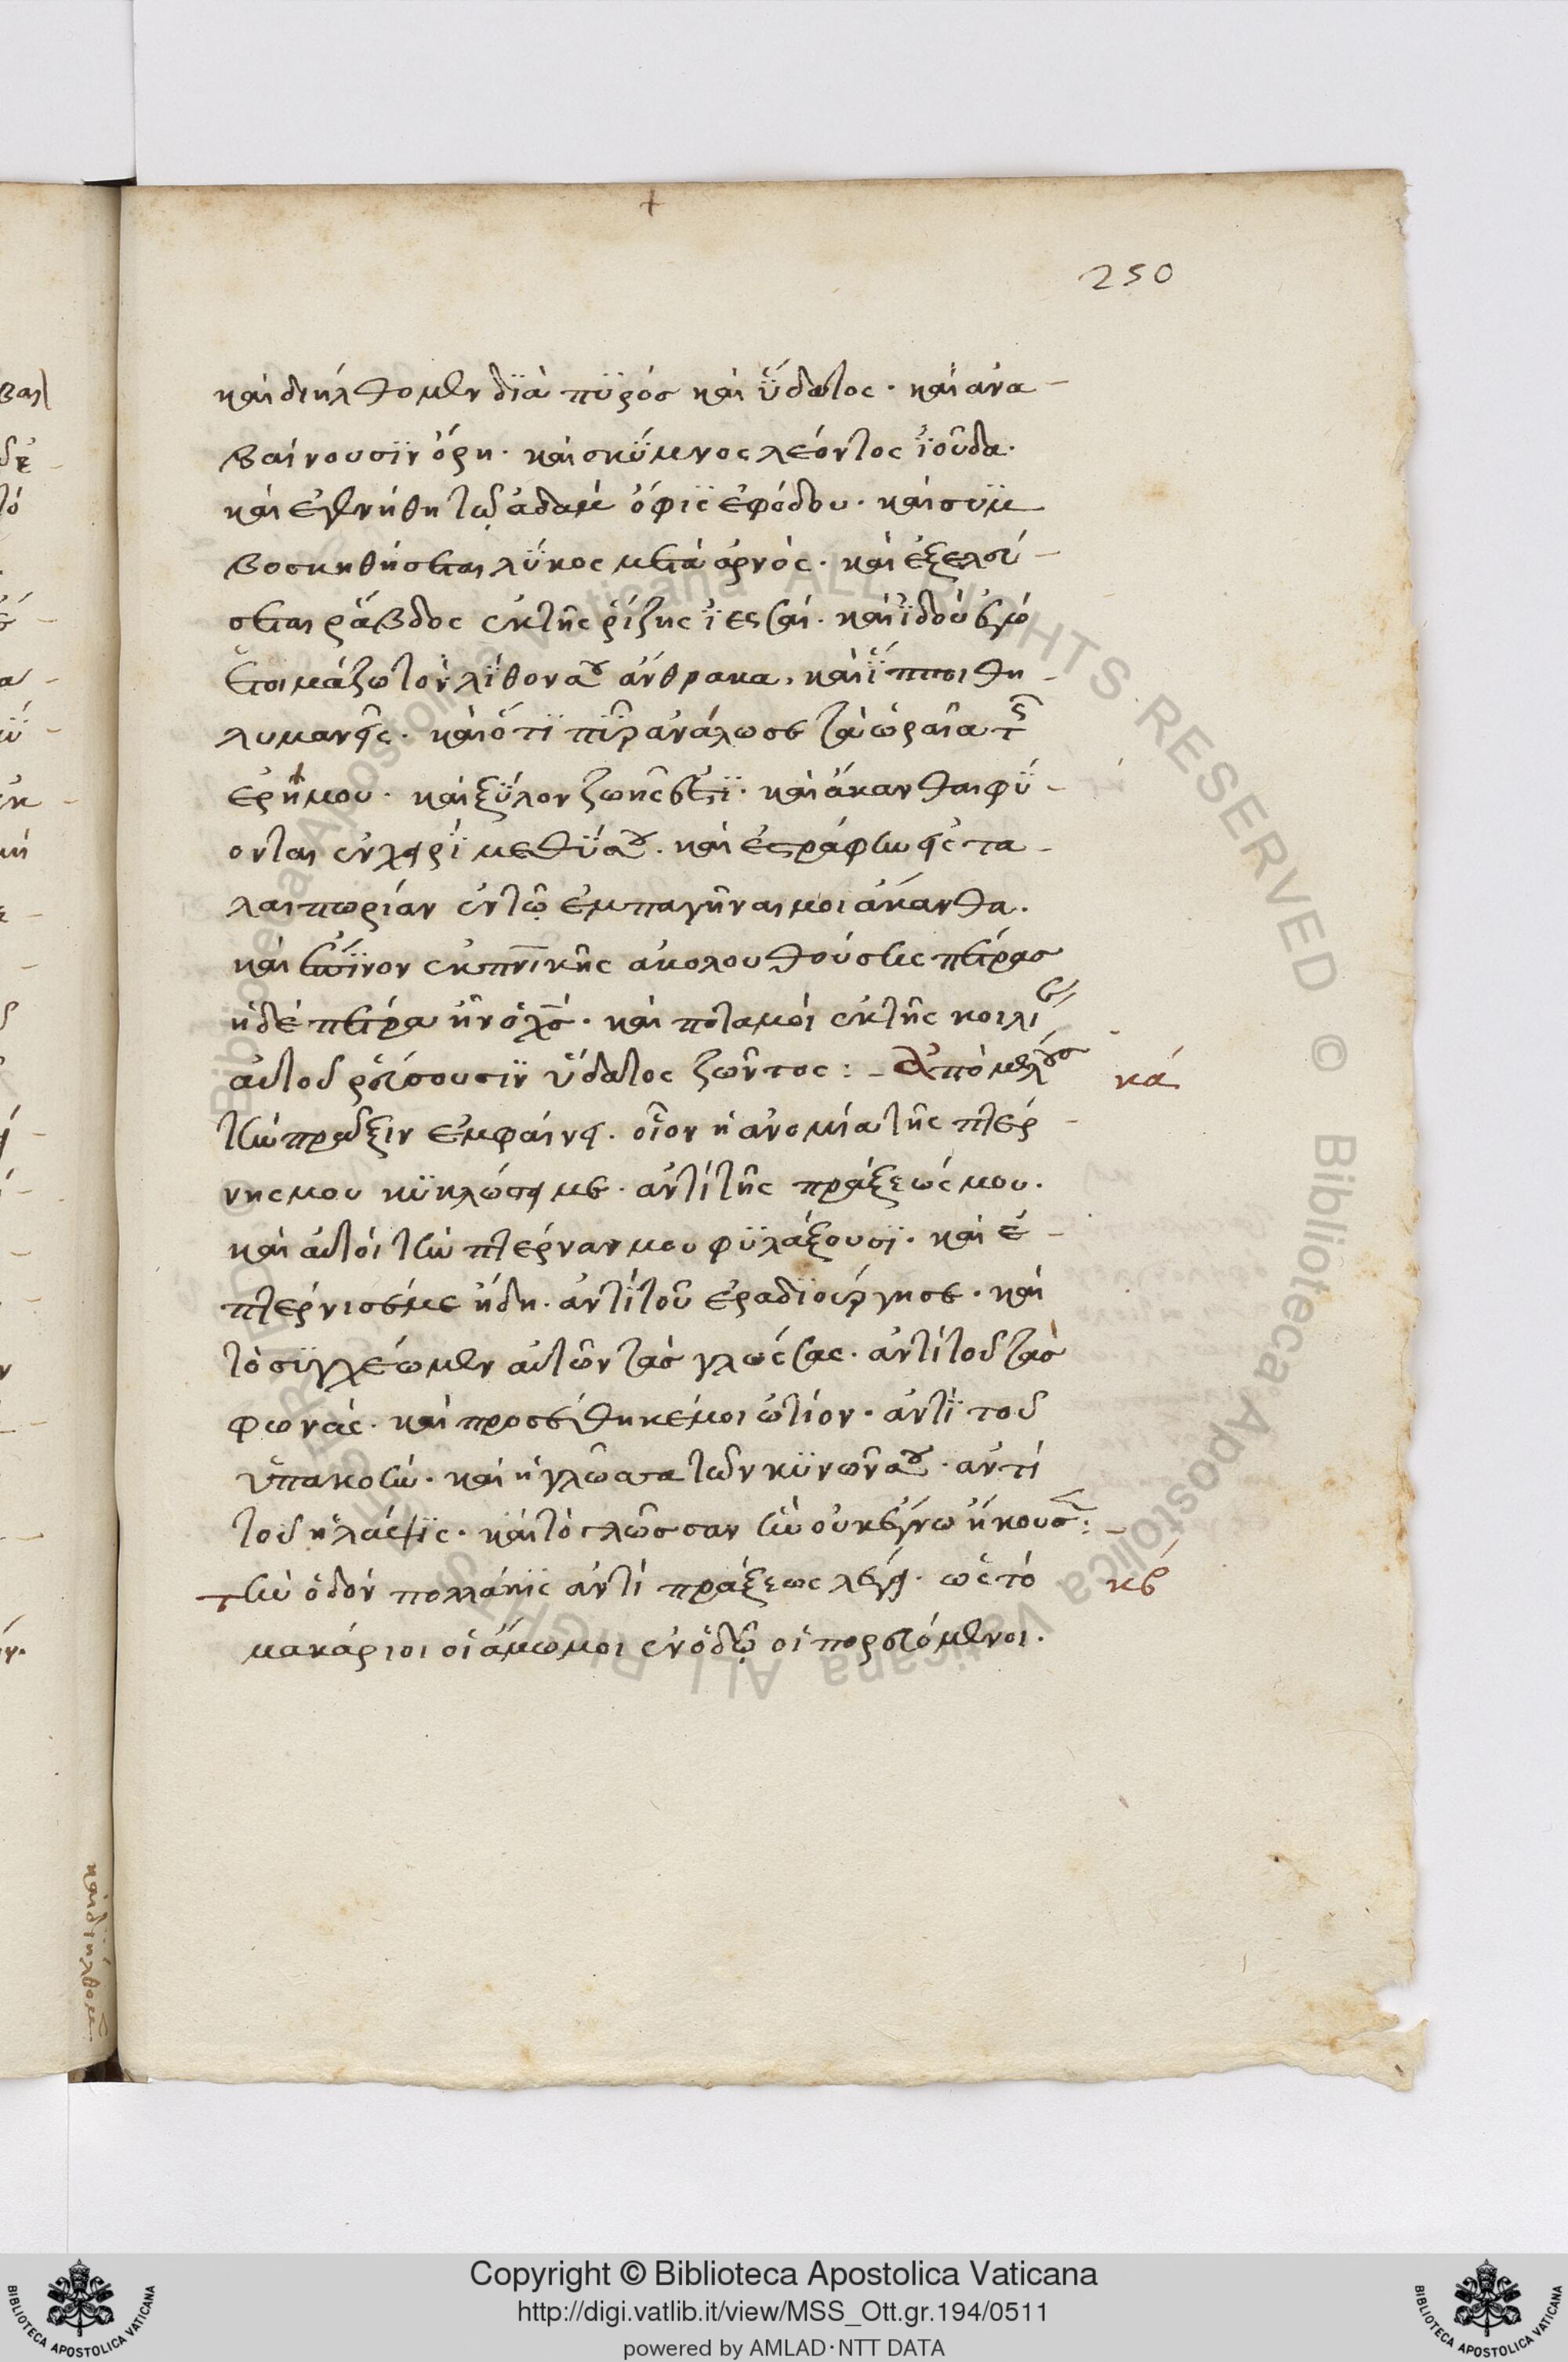 250
καὶ διήλθομεν δϊὰ πϋρόσ καὶ ὕδατος · καὶ ἀνα -
βαίνουσϊν ὄρη · καὶ σκΰμνος λέοντος ἰοῦδα ·
καὶ ἐγενήθη τῶ ἀδὰμ ὄφϊς ἐφόδου · καὶ συμ
βοσκηθήσεται λΰκος μετὰ ἀρνὸς · καὶ ἐξελεύ -
σεται ῥάβδος ἐκ τῆς ῥίζης ἰεσσαὶ · καὶ ἰδοὺ ἐγὼ
ἑτοιμάζω τὸν λίθον σου ἄνθρακα · καὶ ἵπποι θη -
λυμανεῖς · καὶ ὅτϊ πῦρ ἀνάλωσε τὰ ὡραῖα τῆς
ἐρήμου · καὶ ξΰλον ζωῆς ἐστϊ · καὶ ἄκανθαι φΰ -
ονται ἐν χειρὶ μεθΰσου · καὶ ἐστράφην εἰς τα -
λαιπωρίαν ἐν τῶ ἐμπαγῆναι μοι ἄκανθα ·
καὶ ἔπϊνον ἐκ πνϊκῆς ἀκολουθούσης πέτρασ
ἡ δὲ πέτρα ἦν ὁ χσ · καὶ ποταμοὶ ἐκ τῆς κοιλίας
αὐτοῦ ῥεύσουσϊν ὕδατος ζῶντος : - Ἀπὸ μέλουσ
κά
τὴν πρᾶξιν ἐμφαίνει · οἷον ἡ ἀνομία τῆς πτέρ -
νης μου κϋκλώσει με · ἀντὶ τῆς πράξεώς μου ·
καὶ αὐτοὶ τὴν πτέρναν μου φϋλάξουσϊ · καὶ ἐ -
πτέρνισέ με ἤδη · ἀντὶ τοῦ ἐραδϊούργησε · καὶ
τὸ σϋγχέωμεν αὐτῶν τὰσ γλώσσας · ἀντὶ τοῦ τὰσ
φωνάς · καὶ προσέθηκέ μοι ὠτίον · ἀντὶ τοῦ
ὑπακοὴν · καὶ ἡ γλῶσσα τῶν κϋνῶν σου · ἀντὶ
τοῦ ἡ λάψϊς · καὶ τὸ γλῶσσαν ἣν οὐκ ἔγνω ἤκουσεν : -
Τὴν ὁδὸν πολλάκϊς ἀντὶ πράξεως λέγει · ὡς τὸ
κβ
μακάριοι οἱ ἄμωμοι ἐν ὁδῶ οἱ πορευόμενοι ·
καὶ διήλθομεν
Copyright © Biblioteca Apostolica Vaticana
http://digi.vatlib.it/view/MSS_Ott.gr.194/0511
powered by AMLAD·NTT DATA